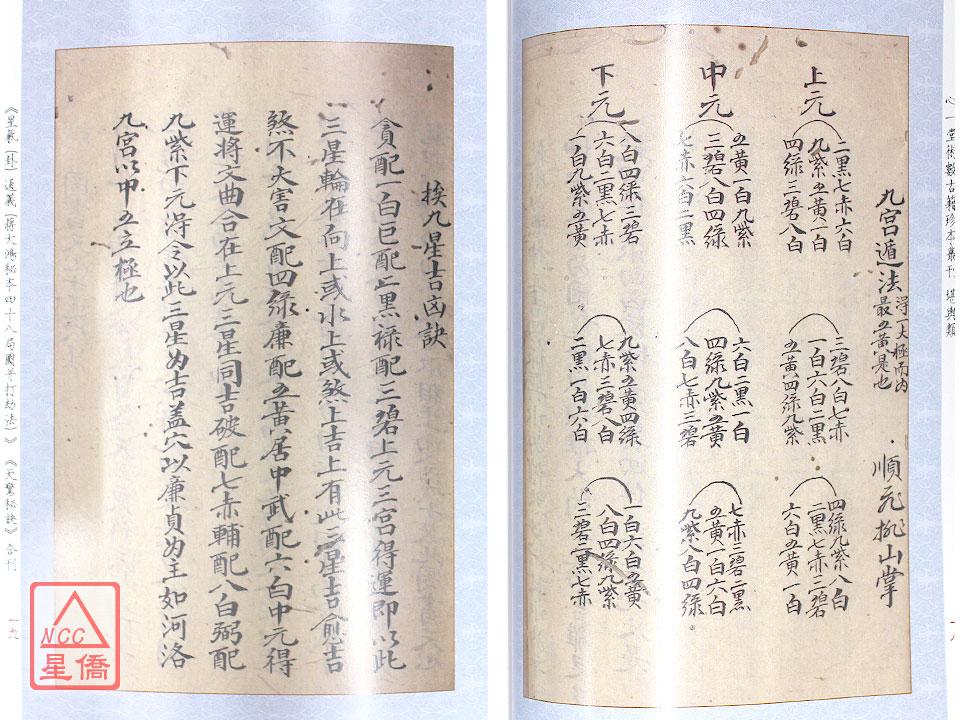 心一堂術數古籍珍本叢刊 堪輿類
九宮遁法
最五黃是也
順飛挑山掌
上元
二黑七赤六白
九紫五黃一白
四綠三碧八白
三碧八白七赤
一白六白二黑
五黃四綠九紫
四綠九紫八白
二黑七赤三碧
六白五黃一白
中元
五黃一白九紫
三碧八白四綠
七赤六白二黑
六白二黑一白
四綠九紫五黃
八白七赤三碧
七赤三碧二黑
五黃一白六白
九紫八白四綠
下元
八白四綠三碧
六白二黑七赤
一白九紫五黃
九紫五黃四綠
七赤三碧八白
二黑一白六白
一白六白五黃
八白四綠九紫
三碧二黑七赤
挨九星吉凶訣
貪配一白巨配二黑祿配三碧上元三宮得運即以此
三星輪在向上或水上或煞上吉上有此三星吉愈吉
煞不大害文配四綠廉配五黃居中武配六白中元得
運將文曲合在上元三星同吉破配七赤輔配八白弼配
九紫下元淂令以此三星為吉蓋穴以廉貞為主如河洛
九宮以中五立極也
《星氣(卦)通義(蔣大鴻秘本四十八局圖并打劫法)》《天驚秘訣》合刊
一九
NCC
星僑